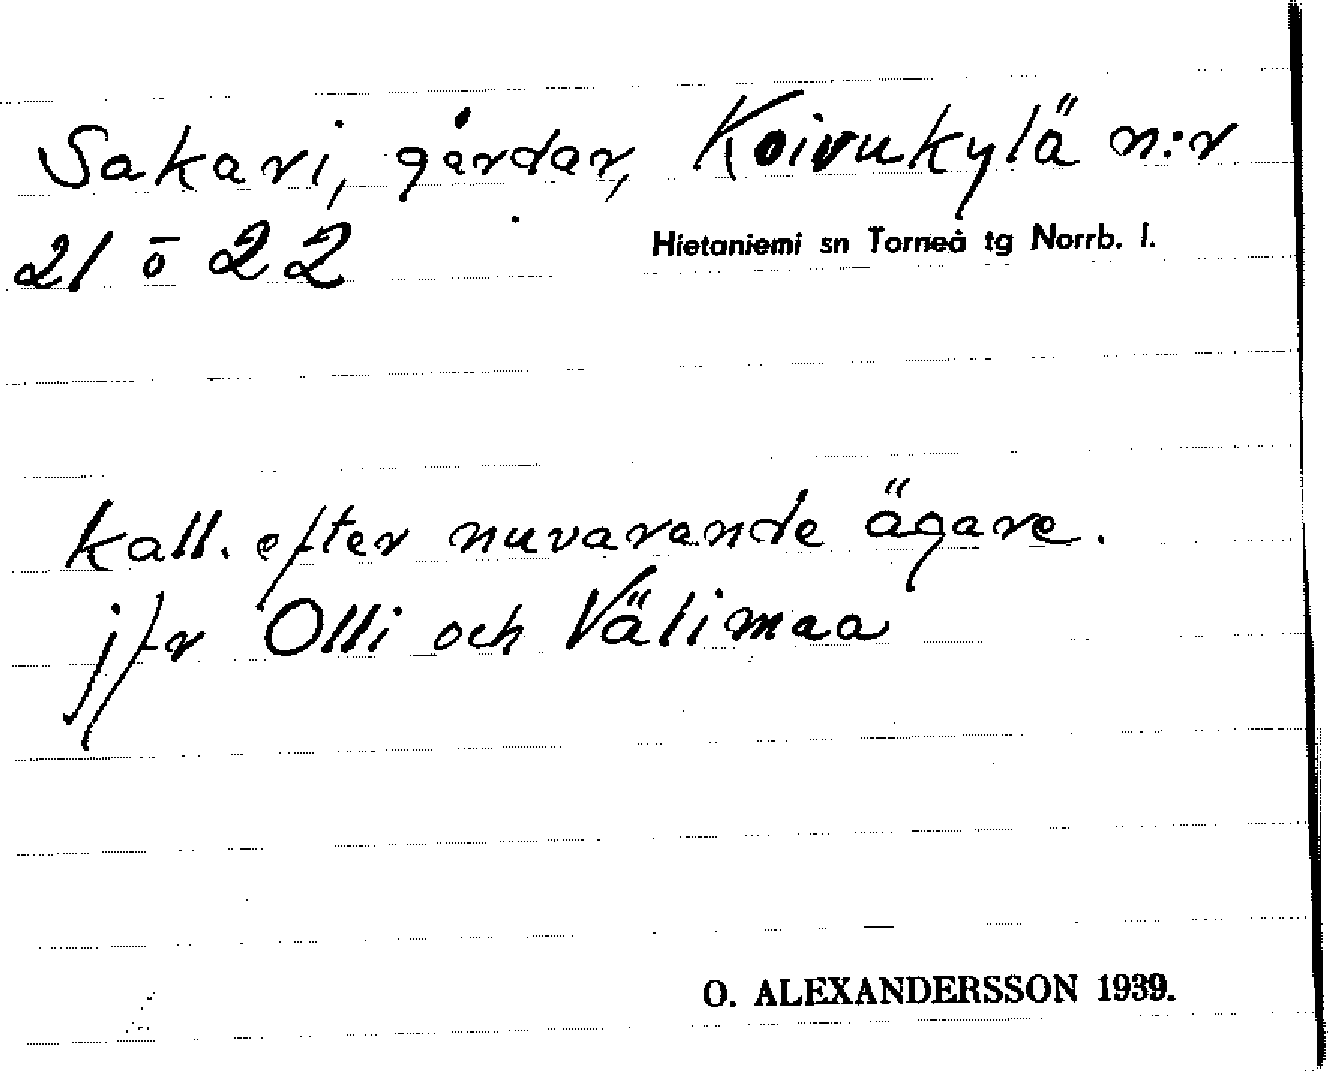 Sakari, gårdar, Koivukylä n:r
21 o 22
Hietaniemi sn Torneå tg Norrb. l.
kall. efter nuvarande ägare.
jfr Olli och Välimaa
O. ALEXANDERSSON 1939.